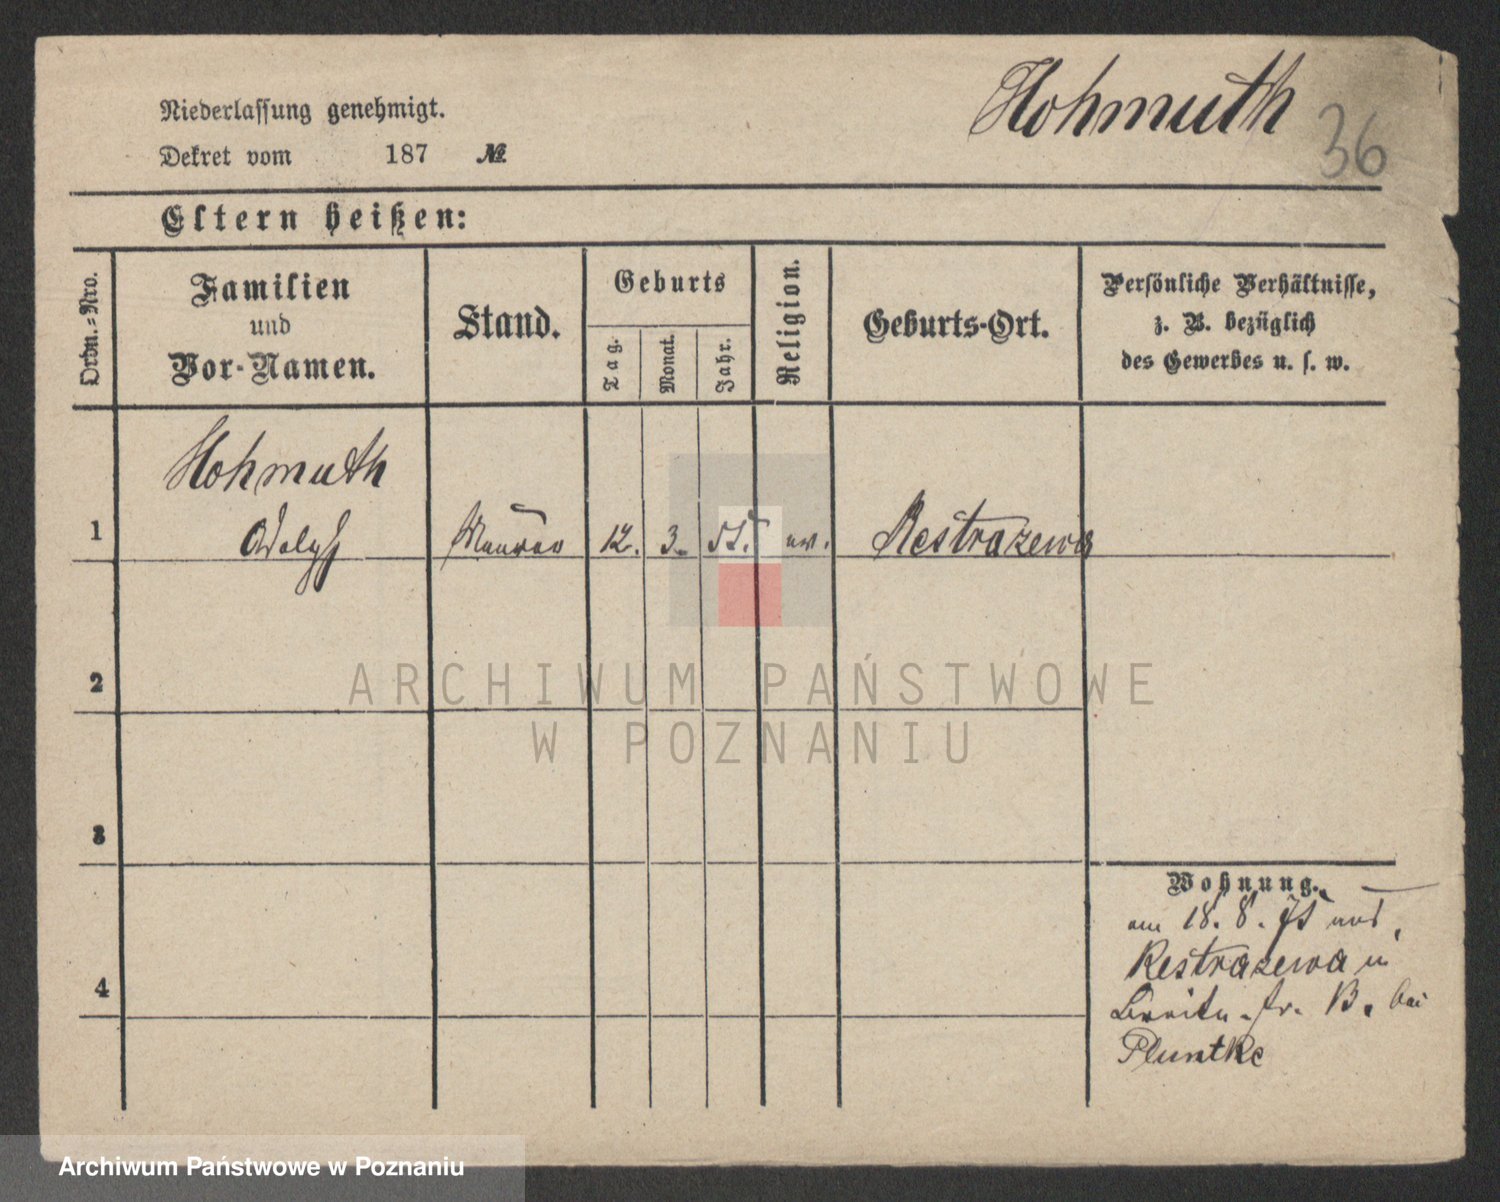 Hohmuth
36
Niederlassung genehmigt.
Dekret vom 187 №
Eltern heißen:
Ordn.-Nro.
Familien
und
Vor-Namen.
Stand.
Geburts
Tag.
Monat.
Jahr.
Religion.
Geburts-Ort.
Persönliche Verhältnisse,
z. B. bezüglich
des Gewerbes u. s. w.
Hohmuth
1 Adolph Maurer 12. 3. 55. ev. Restrazewo
2
3
4
Wohnung.
am 18. 8. 75 aus
Restrazewa in
Breite-str. B. bei
Pluntke
ARCHIWUM PAŃSTWOWE
W POZNANIU
Archiwum Państwowe w Poznaniu